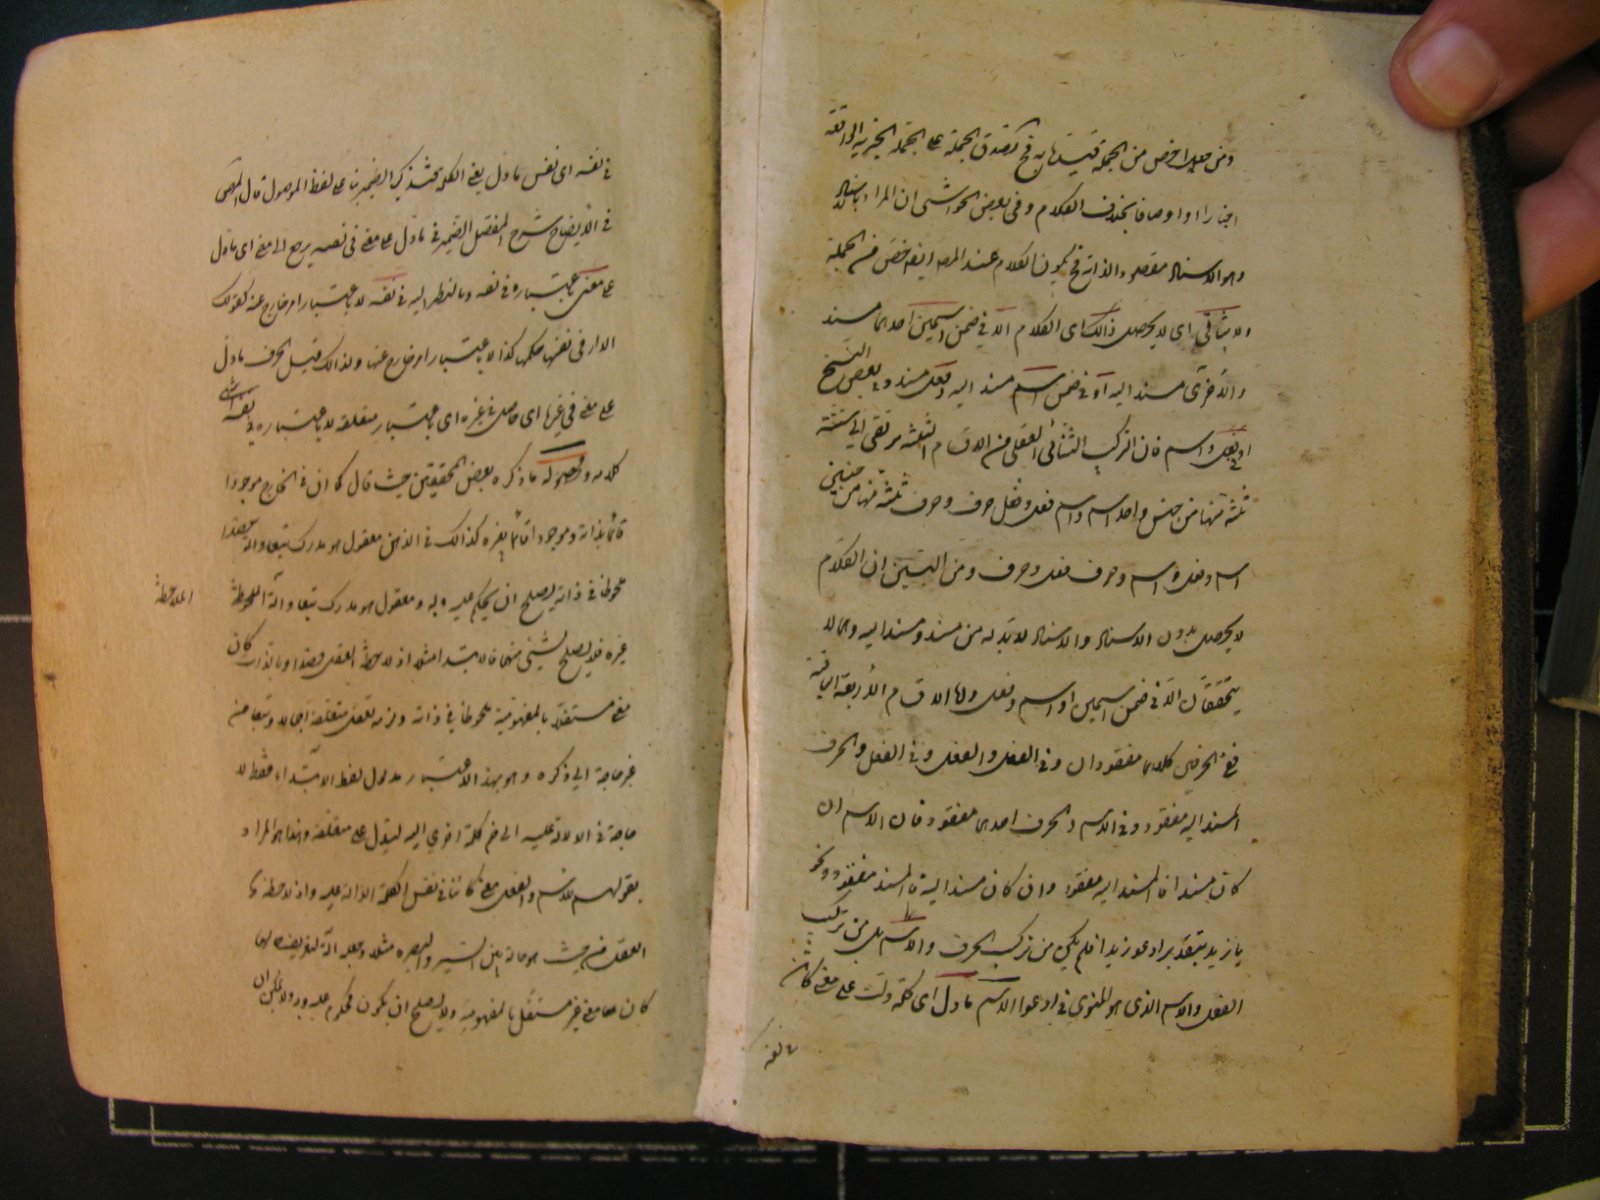 ومن جعله اخص من الجملة قيدنا به فح يصدق الجملة على الجملة الخبرية الواقعة
اخبارا او اوصافا بخلاف الكلام وفى بعض الحواشى ان المراد بالاسناد
وهو الاسناد مقصود لذاته فح يكون الكلام عند المصـ ايضا اخص من الجملة
ولا يتأتى اى لا يحصل ذلك اى الكلام الا فى ضمن اسمين احدهما مسند
والاخرى مسند اليه او فى ضمن اسم مسند اليه وفعل مسند وفى بعض النسخ
او فى فعل واسم فان التركيب الثنائى العقلى من الاقسام الثلثة يرتقى الى ستة
ثلثة منها من جنس واحد اسم واسم فعل وفعل حرف وحرف ثلثة منها من جنسين
اسم وفعل واسم وحرف فعل وحرف ومن البين ان الكلام
لا يحصل بدون الاسناد والاسناد لا بد له من مسند ومسند اليه وهما لا
يتحققان الا فى ضمن اسمين او اسم وفعل واما الاقسام الاربعة الباقية
ففى الحرفين كلاهما مفقودان وفى الفعل والفعل وفى الفعل والحرف
المسند اليه مفقود وفى الاسم والحرف احدهما مفقود فان الاسم ان
كان مسندا فالمسند اليه مفقود وان كان مسندا اليه فالمسند مفقود ونحو
يا زيد بتقدير ادعو زيدا فلم يكن من تركيب الحرف والاسم بل من تركيب
الفعل والاسم الذى هو المنوى فى ادعوا الاسم ما دل اى كلمة دلت على معنى كائن
فى نفسه
فى نفسه اى نفس ما دل يعنى الكلمة فتذكير الضمير بناء على لفظ الموصول قال المصـ
فى الايضاح شرح المفصل الضمير فى ما دل على معنى فى نفسه يرجع الى معنى اى ما دل
على معنى باعتباره فى نفسه وبالنظر اليه فى نفسه لا باعتبار امر خارج عنه كقولك
الدار فى نفسها حكمها كذا لا باعتبار امر خارج عنها ولذلك قيل الحرف ما دل
على معنى فى غيرها اى حاصل فى غيره اى باعتبار متعلقه لا باعتباره فى نفسه انتهى
كلامه ومحصوله ما ذكره بعض المحققين حيث قال كما ان فى الخارج موجودا
قائما بذاته وموجودا قائما بغيره كذلك فى الذهن معقول هو مدرك قصدا
ملحوظا فى ذاته يصلح ان يحكم عليه وبه ومعقول هو مدرك تبعا وآلة لملاحظة
الملاحظة
غيره فلا يصلح لشئ منهما فالابتداء مثلا اذا لاحظه العقل قصدا وبالذات كان
معنى مستقلا بالمفهومية ملحوظا فى ذاته ولزمه تعقل متعلقه اجمالا وتبعا من
غير حاجة الى ذكره وهو بهذا الاعتبار مدلول لفظ الابتداء فقط لا
حاجة فى الدلالة عليه الى ضم كلمة اخرى اليه ليدل على متعلقه وهذا هو المراد
بقولهم للاسم والفعل معنى كائنا فى نفس الكلمة الدالة عليه واذا لاحظه
العقل من حيث هو حالة بين السير والبصرة مثلا وجعله آلة لتعرف حالهما
كان معنى غير مستقل بالمفهومية ولا يصلح ان يكون محكوما عليه وبه ولا يمكن ان